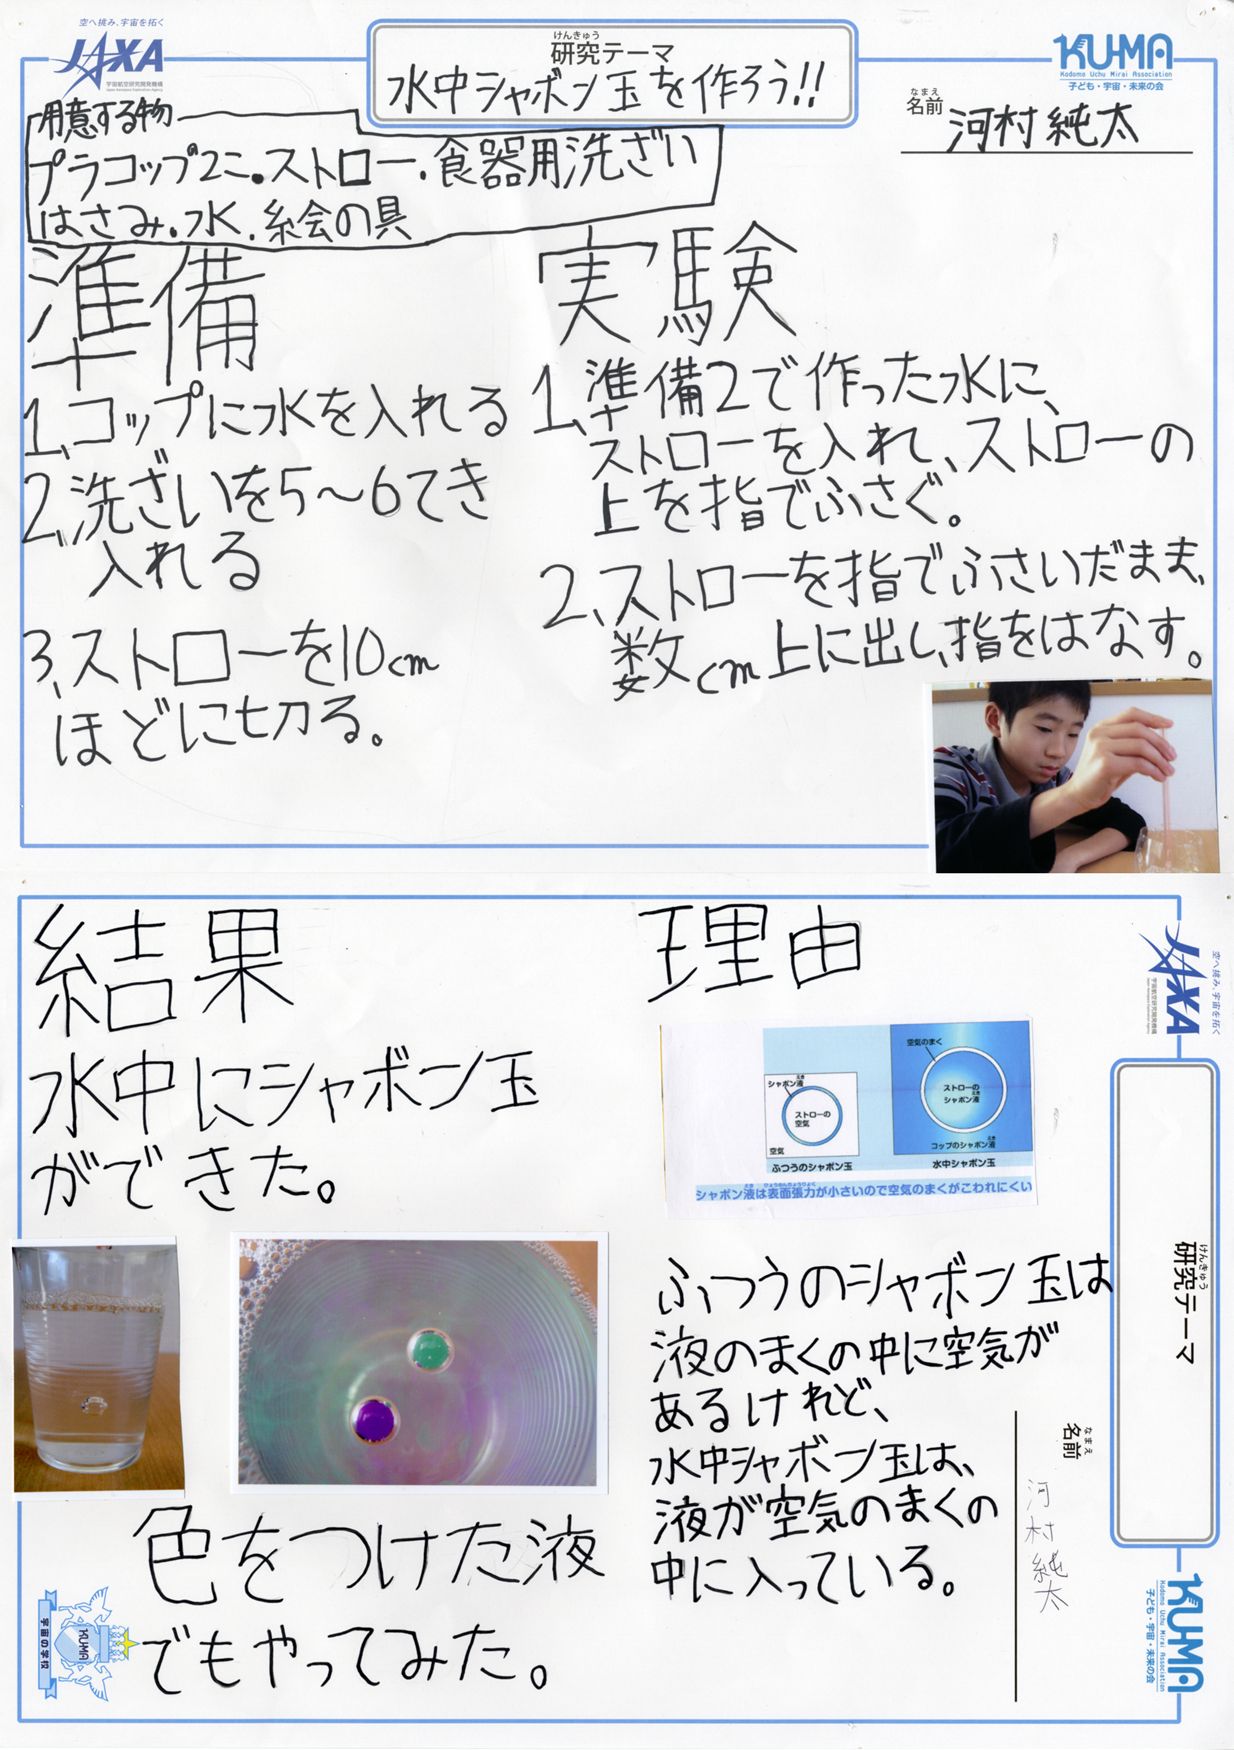 空へ挑み、宇宙を拓く
JAXA
宇宙航空研究開発機構
Japan Aerospace Exploration Agency
けんきゅう
研究テーマ
水中シャボン玉を作ろう!!
KU-MA
Kodomo Uchu Mirai Association
子ども・宇宙・未来の会
なまえ
名前 河村 純太
用意する物
プラコップ2こ・ストロー・食器用洗ざい
はさみ・水・絵の具
準備
1、コップに水を入れる
2、洗ざいを5〜6てき
入れる
3、ストローを10cm
ほどに切る。
実験
1、準備2で作った水に、
ストローを入れ、ストローの
上を指でふさぐ。
2、ストローを指でふさいだまま、
数cm上に出し、指をはなす。
結果
水中にシャボン玉
ができた。
色をつけた液
でもやってみた。
KU-MA
宇宙の学校
理由
シャボン液
えき
ストローの
空気
空気
ふつうのシャボン玉
空気のまく
ストローの
えき
シャボン液
えき
コップのシャボン液
水中シャボン玉
えき ひょうめんちょうりょく
シャボン液は表面張力が小さいので空気のまくがこわれにくい
ふつうのシャボン玉は
液のまくの中に空気が
あるけれど、
水中シャボン玉は、
液が空気のまくの
中に入っている。
空へ挑み、宇宙を拓く
JAXA
宇宙航空研究開発機構
Japan Aerospace Exploration Agency
けんきゅう
研究テーマ
なまえ
名前
河村純太
KU-MA
Kodomo Uchu Mirai Association
子ども・宇宙・未来の会